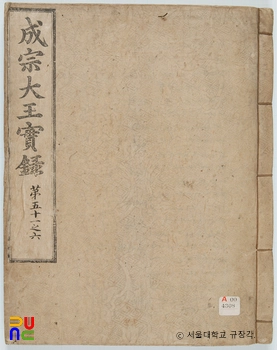 成宗大王實錄
第五十一之六
A 00
© 서울대학교 규장각